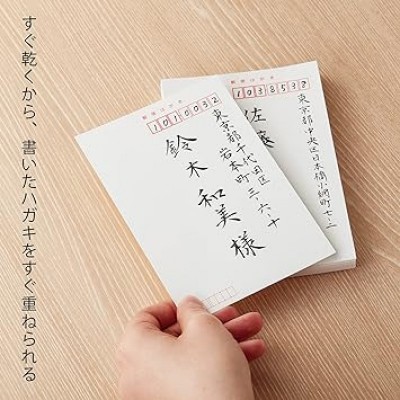 すぐ乾くから、書いたハガキをすぐ重ねられる
郵便はがき
1010032
東京都千代田区
岩本町三、六、十
鈴木和美様
1038532
東京都中央区日本橋小網町七、二
佐藤